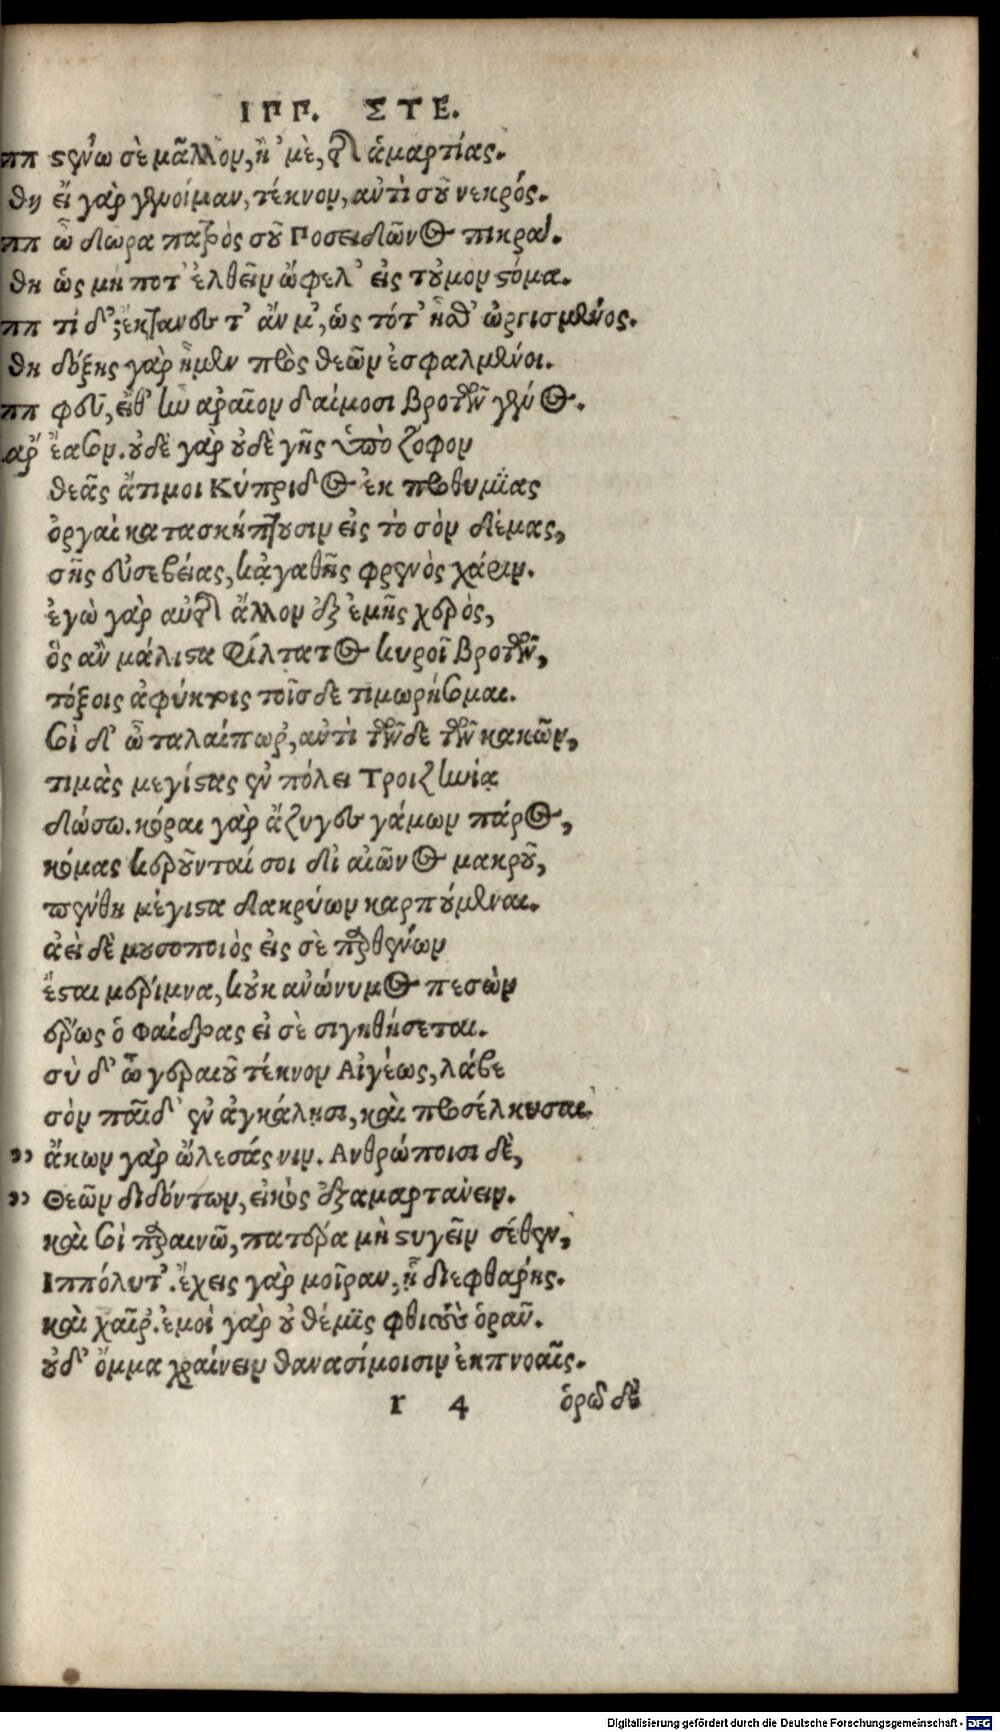 ΙΠΠ. ΣΤΕ.
ππ στένω σὲ μᾶλλον, ἢ 'μὲ, τῆς ἁμαρτίας.
θη εἴ γὰρ γενοίμαν, τέκνον, αὐτὶ σοῦ νεκρός.
ππ ὦ δῶρα πατρὸς σοῦ Ποσειδῶνος πικρά.
θη ὡς μή ποτ' ἐλθεῖν ὤφελ' εἰς τοὐμὸν στόμα.
ππ τί δ'; ἔκτανες τ' ἄν μ', ὡς τότ' ἦσθ' ὠργισμένος.
θη δόξης γὰρ ἦμεν πρὸς θεῶν ἐσφαλμένοι.
ππ φεῦ, εἴθ' ἦν ἀραῖον δαίμοσι βροτῶν γένος.
αρ ἔασον. οὐδὲ γὰρ οὐδὲ γῆς ὑπὸ ζόφον
θεᾶς ἄτιμοι Κύπριδος ἐκ προθυμίας
ὀργαὶ κατασκήπτουσιν εἰς τὸ σὸν δέμας,
σῆς εὐσεβείας, κἀγαθῆς φρενὸς χάριν.
ἐγὼ γὰρ αὐτῆς ἄλλον ἐξ ἐμῆς χερὸς,
ὃς ἂν μάλιστα φίλτατος κυροῖ βροτῶν,
τόξοις ἀφύκτοις τοῖσδε τιμωρήσομαι.
σοὶ δ' ὦ ταλαίπωρ, αὐτὶ τῶνδε τῶν κακῶν,
τιμὰς μεγίστας ἐν πόλει Τροιζηνίᾳ
δώσω. κόραι γὰρ ἄζυγες γάμων πάρος,
κόμας κεροῦνταί σοι δι' αἰῶνος μακροῦ,
πένθη μέγιστα δακρύων καρπούμεναι.
ἀεὶ δὲ μουσοποιὸς εἰς σὲ παρθένων
ἔσται μέριμνα, κοὐκ ἀνώνυμος πεσὼν
ἔρως ὁ Φαίδρας εἰ σὲ σιγηθήσεται.
σὺ δ' ὦ γεραιοῦ τέκνον Αἰγέως, λάβε
σὸν παῖδ' ἐν ἀγκάλῃσι, καὶ προσέλκυσαι.
„ ἄκων γὰρ ὤλεσάς νιν. Ανθρώποισι δὲ,
„ Θεῶν διδόντων, εἰκὸς ἐξαμαρτάνειν.
καὶ σοὶ παραινῶ, πατέρα μὴ στυγεῖν σέθεν,
Ιππόλυτ'. ἔχεις γὰρ μοῖραν, ᾗ διεφθάρης.
καὶ χαῖρ'. ἐμοὶ γὰρ οὐ θέμις φθιτοὺς ὁρᾶν.
οὐδ' ὄμμα χραίνειν θανασίμοισιν ἐκπνοαῖς.
r 4 ὁρῶ δὲ
Digitalisierung gefördert durch die Deutsche Forschungsgemeinschaft - DFG